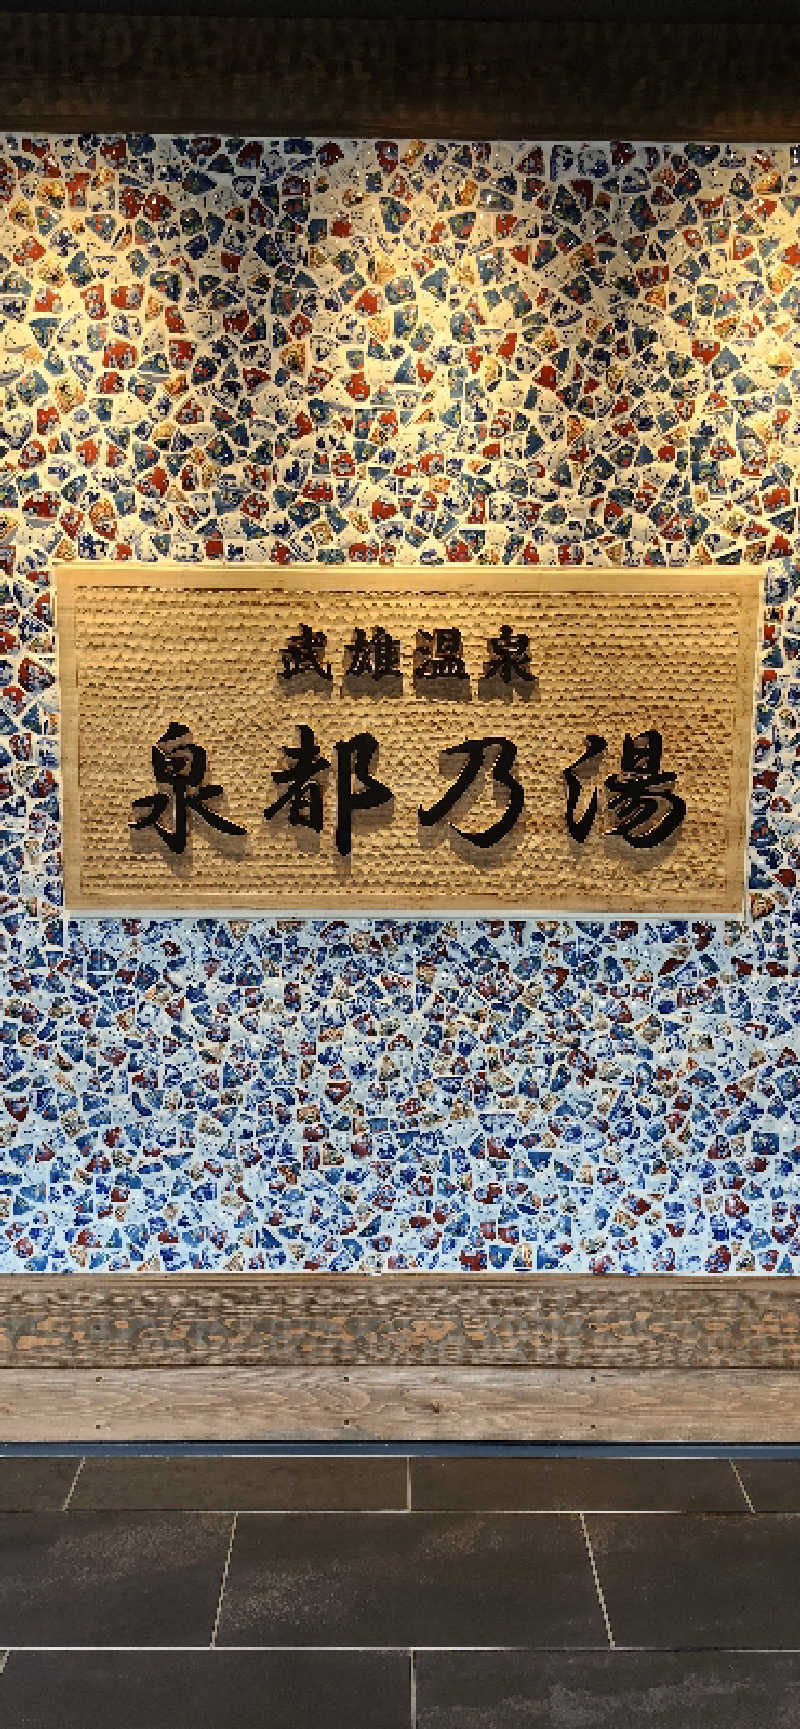 武雄温泉
泉都乃湯